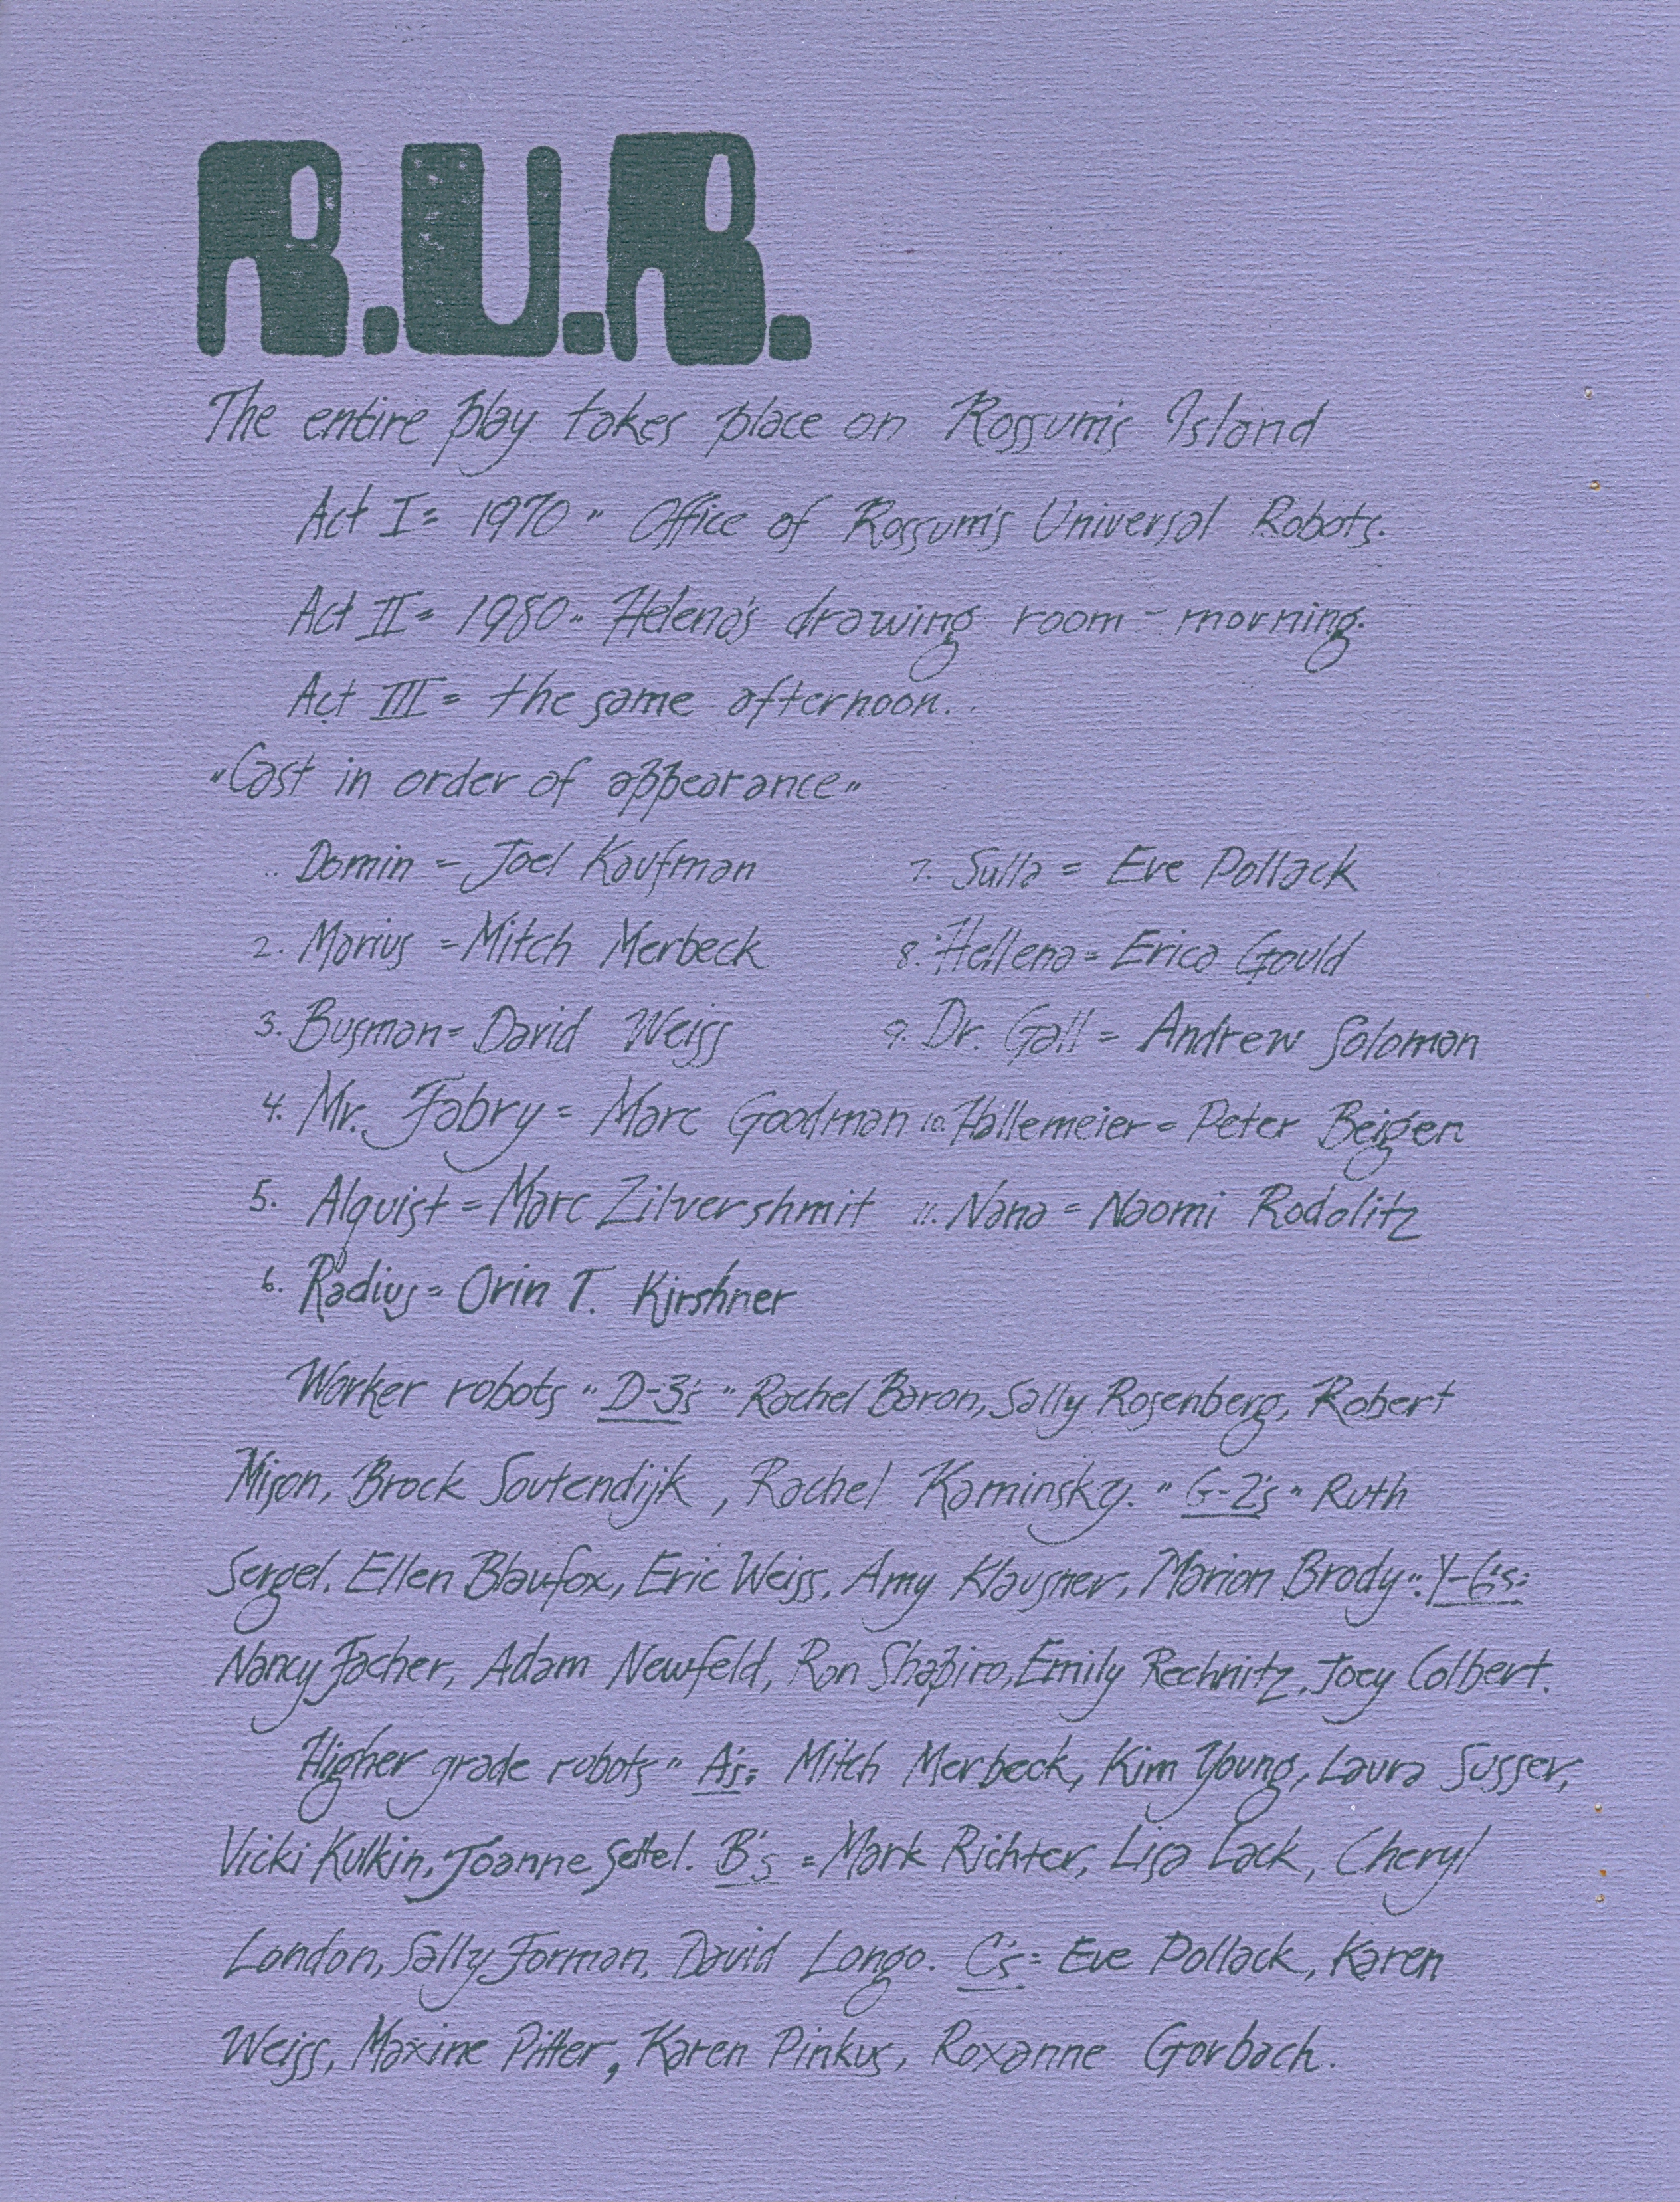 R.U.R.
The entire play takes place on Rossum's Island
Act I= 1970 " Office of Rossum's Universal Robots.
Act II= 1980 " Helena's drawing room - morning.
Act III= the same afternoon.
"Cast in order of appearance"
Domin = Joel Kaufman 7. Sulla = Eve Pollack
2. Marius = Mitch Merbeck 8. Hellena = Erica Gould
3. Busman= David Weiss 9. Dr. Gall = Andrew Solomon
4. Mr. Fabry = Marc Goodman 10. Hallemeier = Peter Beigen
5. Alquist = Marc Zilvershmit 11. Nana = Naomi Rodolitz
6. Radius= Orin T. Kirshner
Worker robots " D-3's " Rachel Baron, Sally Rosenberg, Robert
Mison, Brock Soutendijk, Rachel Kaminsky. " G-2's " Ruth
Sergel, Ellen Blaufox, Eric Weiss, Amy Klausner, Marion Brody". Y-6's:
Nancy Facher, Adam Newfeld, Ron Shapiro, Emily Rechnitz, Joey Colbert.
Higher grade robots" A's: Mitch Merbeck, Kim Young, Laura Susser,
Vicki Kulkin, Joanne Settel. B's = Mark Richter, Lisa Lack, Cheryl
London, Sally Forman, David Longo. C's= Eve Pollack, Karen
Weiss, Maxine Pitter, Karen Pinkus, Roxanne Gorbach.